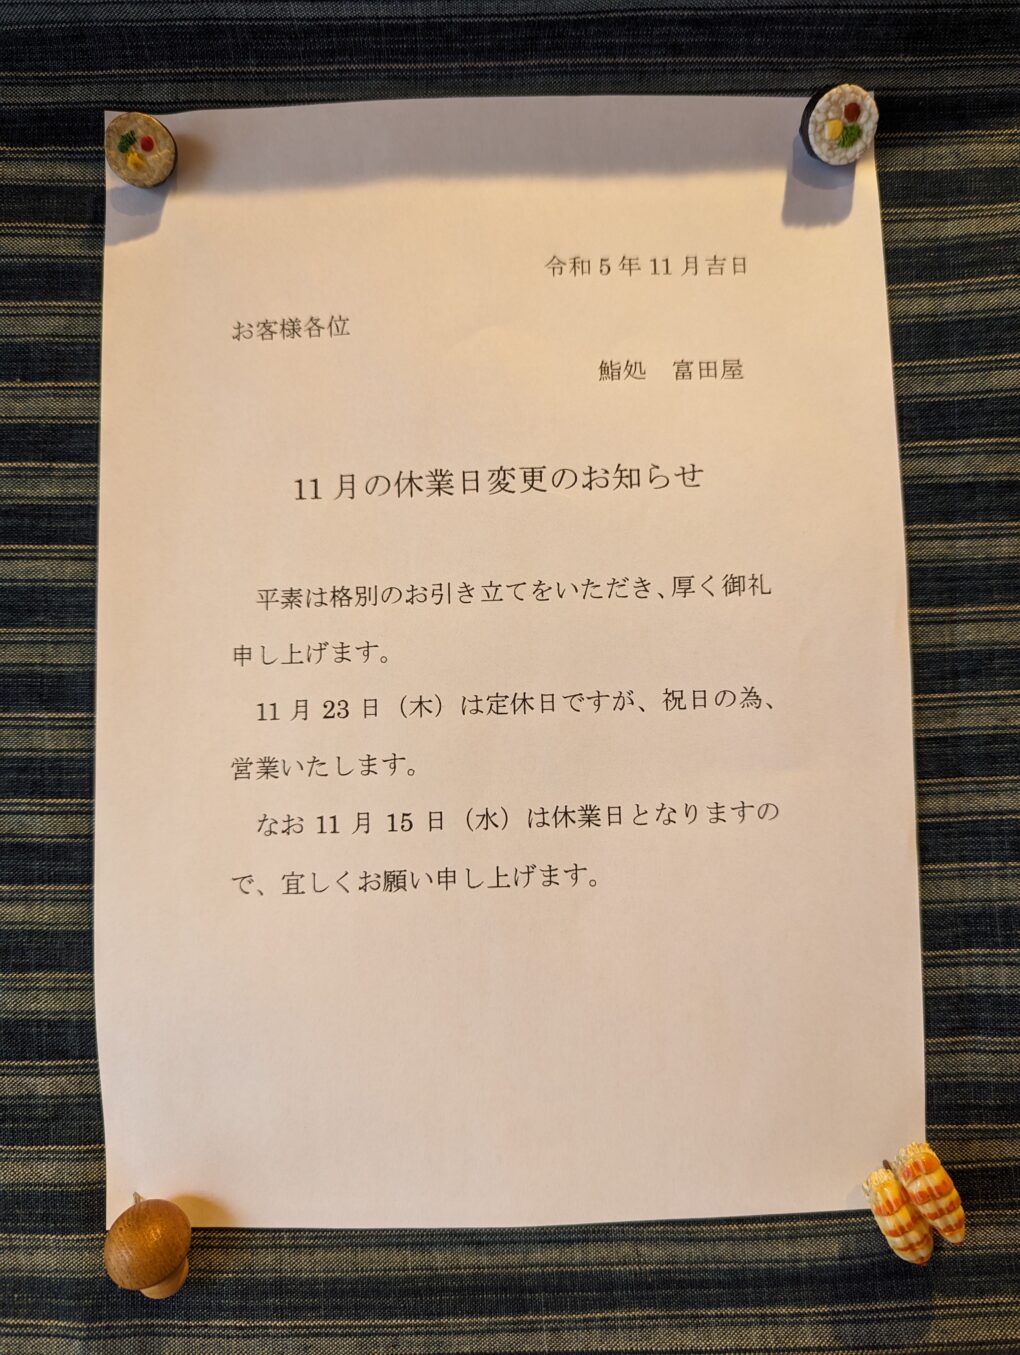 令和5年11月吉日
お客様各位
鮨処　富田屋
11月の休業日変更のお知らせ
平素は格別のお引き立てをいただき、厚く御礼
申し上げます。
11月23日（木）は定休日ですが、祝日の為、
営業いたします。
なお11月15日（水）は休業日となりますの
で、宜しくお願い申し上げます。